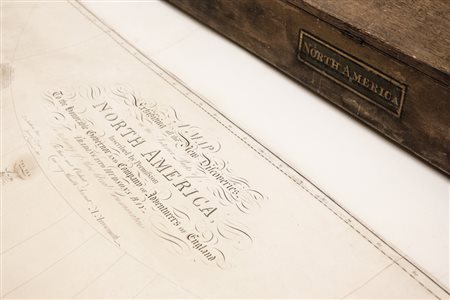 NORTH AMERICA
A MAP
Exhibiting all the New Discoveries
in the Interior Parts of
NORTH AMERICA
Inscribed by Permission
To the Honorable Governor and Company of Adventurers of England
Trading into Hudsons Bay